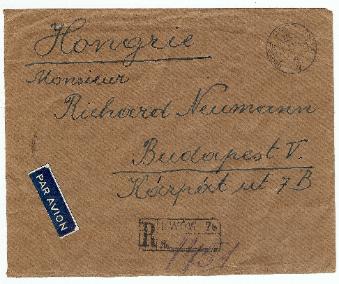 Hongrie
Monsieur
Richard Neumann
Budapest V.
Kárpát ut 7B
PAR AVION
R